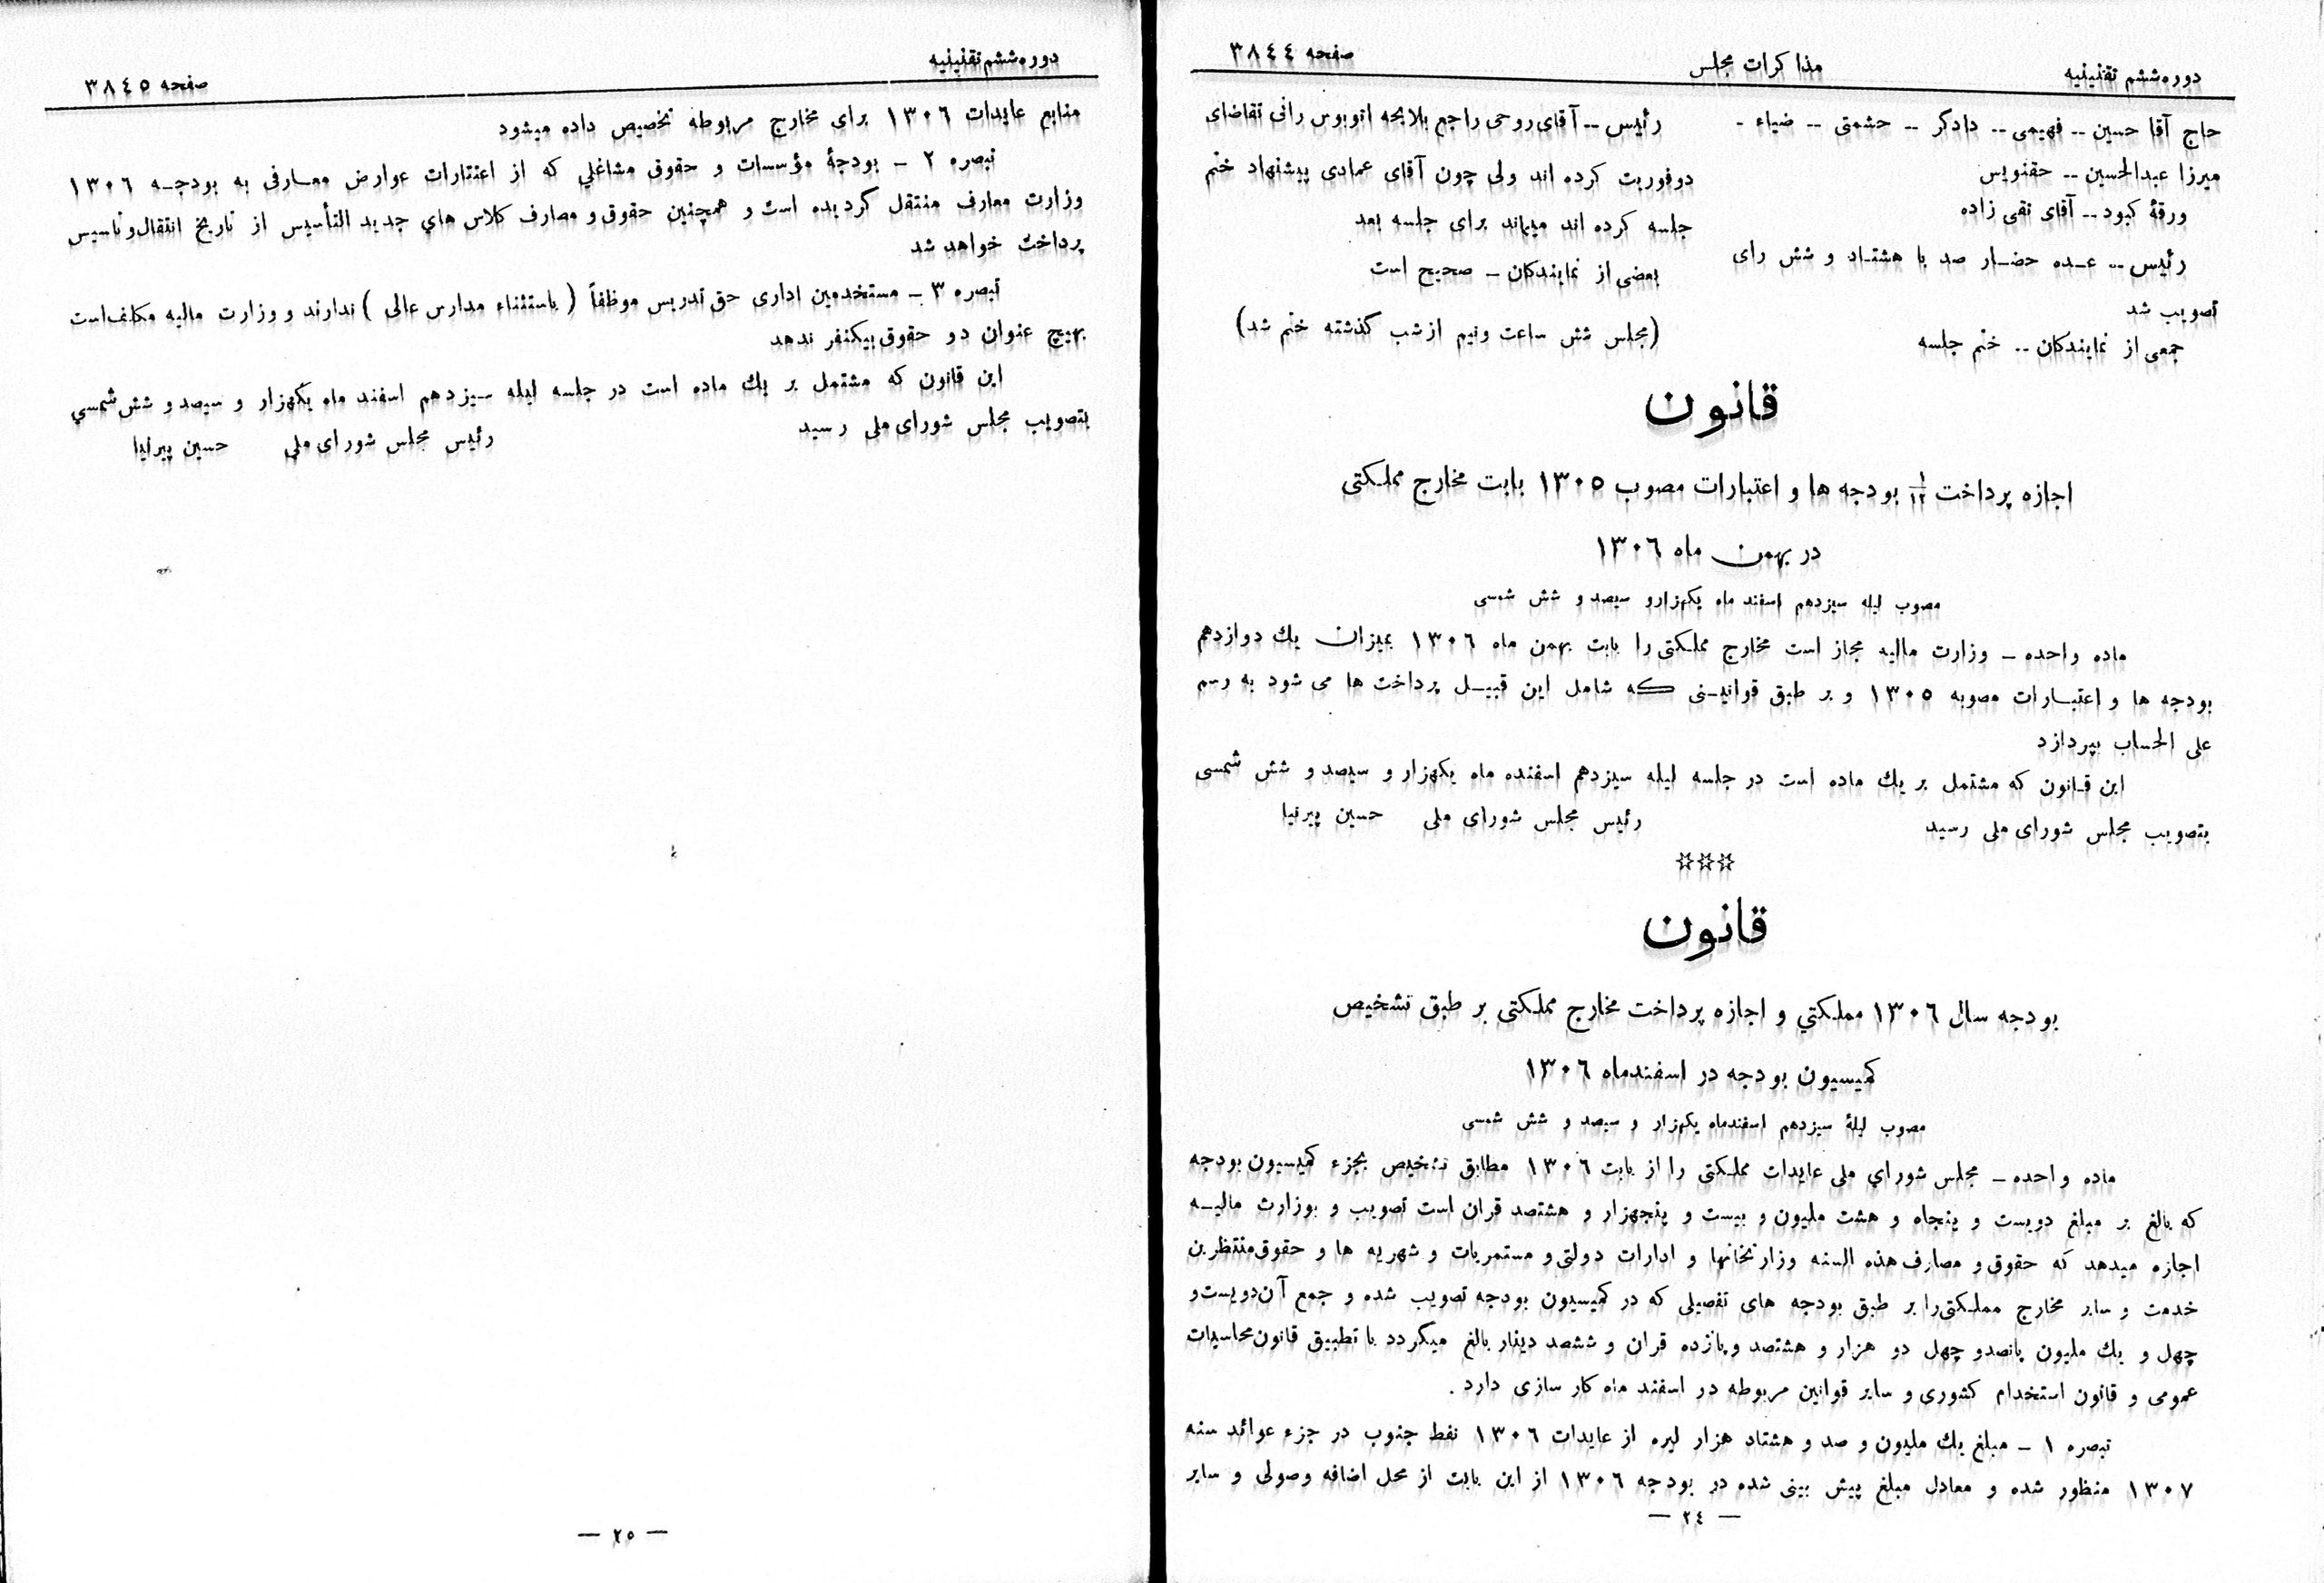 دوره ششم تقنینیه
مذاکرات مجلس
صفحه ۳۸٤٤
حاج آقا حسین -- فهیمی -- دادگر -- حشمتی -- ضیاء -
میرزا عبدالحسین -- حقنویس
ورقهٔ کبود -- آقای تقی زاده
رئیس -- عـده حضـار صد با هشتـاد و شش رای
تصویب شد
جمعی از نمایندگان -- ختم جلسه
رئیس -- آقای روحی راجع بلایحه اتوبوس رانی تقاضای
دوفوریت کرده اند ولی چون آقای عمادی پیشنهاد ختم
جلسه کرده اند میماند برای جلسه بعد
بعضی از نمایندگان - صحیح است
(مجلس شش ساعت ونیم از شب گذشته ختم شد)
قانون
اجازه پرداخت ۱/۱۲ بودجه ها و اعتبارات مصوب ۱۳۰۵ بابت مخارج مملکتی
در بهمن ماه ۱۳۰٦
مصوب لیله سیزدهم اسفند ماه یکهزارو سیصد و شش شمسی
ماده واحده - وزارت مالیه مجاز است مخارج مملکتی را بابت بهمن ماه ۱۳۰٦ بمیزان یك دوازدهم
بودجه ها و اعتبـارات مصوبه ۱۳۰۵ و بر طبق قوانیـنی که شامل این قبیـل پرداخت ها می شود به رسم
علی الحساب بپردازد
این قـانون که مشتمل بر یك ماده است در جلسه لیله سیزدهم اسفنده ماه یکهزار و سیصد و شش شمسی
بتصویب مجلس شورای ملی رسید
رئیس مجلس شورای ملی حسین پیرنیا
☆☆☆
قانون
بودجه سال ۱۳۰٦ مملکتي و اجازه پرداخت مخارج مملکتی بر طبق تشخیص
کمیسیون بودجه در اسفندماه ۱۳۰٦
مصوب لیلهٔ سیزدهم اسفندماه یکهزار و سیصد و شش شمسی
ماده واحده - مجلس شوراي ملی عایدات مملکتی را از بابت ۱۳۰٦ مطابق تشخیص بجزء کمیسیون بودجه
که بالغ بر مبلغ دویست و پنجاه و هشت ملیون و بیست و پنجهزار و هشتصد قران است تصویب و بوزارت مالیـه
اجازه میدهد که حقوق و مصارف هذه السنه وزارتخانها و ادارات دولتی و مستمریات و شهریه ها و حقوق منتظرین
خدمت و سایر مخارج مملکتی را بر طبق بودجه های تفصیلی که در کمیسیون بودجه تصویب شده و جمع آن دویست و
چهل و یك ملیون پانصدو چهل دو هزار و هشتصد و پانزده قران و ششصد دینار بالغ میگردد با تطبیق قانون محاسبات
عمومی و قانون استخدام کشوری و سایر قوانین مربوطه در اسفند ماه کار سازی دارد .
تبصره ۱ - مبلغ یك ملیون و صد و هشتاد هزار لیره از عایدات ۱۳۰٦ نفط جنوب در جزء عوائد سنه
۱۳۰۷ منظور شده و معادل مبلغ پیش بینی شده در بودجه ۱۳۰٦ از این بابت از محل اضافه وصولی و سایر
— ۲٤ —
دوره ششم تقنینیه
صفحه ۳۸٤۵
منابع عایدات ۱۳۰٦ برای مخارج مربوطه تخصیص داده میشود
تبصره ۲ - بودجهٔ مؤسسات و حقوق مشاغلي که از اعتتارات عوارض معـارفی به بودجـه ۱۳۰٦
وزارت معارف منتقل گردیده است و همچنین حقوق و مصارف کلاس هاي جدید التأسیس از تاریخ انتقال و تاسیس
پرداخت خواهد شد
تبصره ۳ - مستخدمین اداری حق تدریس موظفاً ( باستثناء مدارس عالی ) ندارند و وزارت مالیه مکلف است
بهیچ عنوان دو حقوق بیکنفر ندهد
این قانون که مشتمل بر یك ماده است در جلسه لیله سیزدهم اسفند ماه یکهزار و سیصد و شش شمسي
بتصویب مجلس شورای ملی رسید
رئیس مجلس شورای ملي حسین پیرنیا
— ۲۵ —